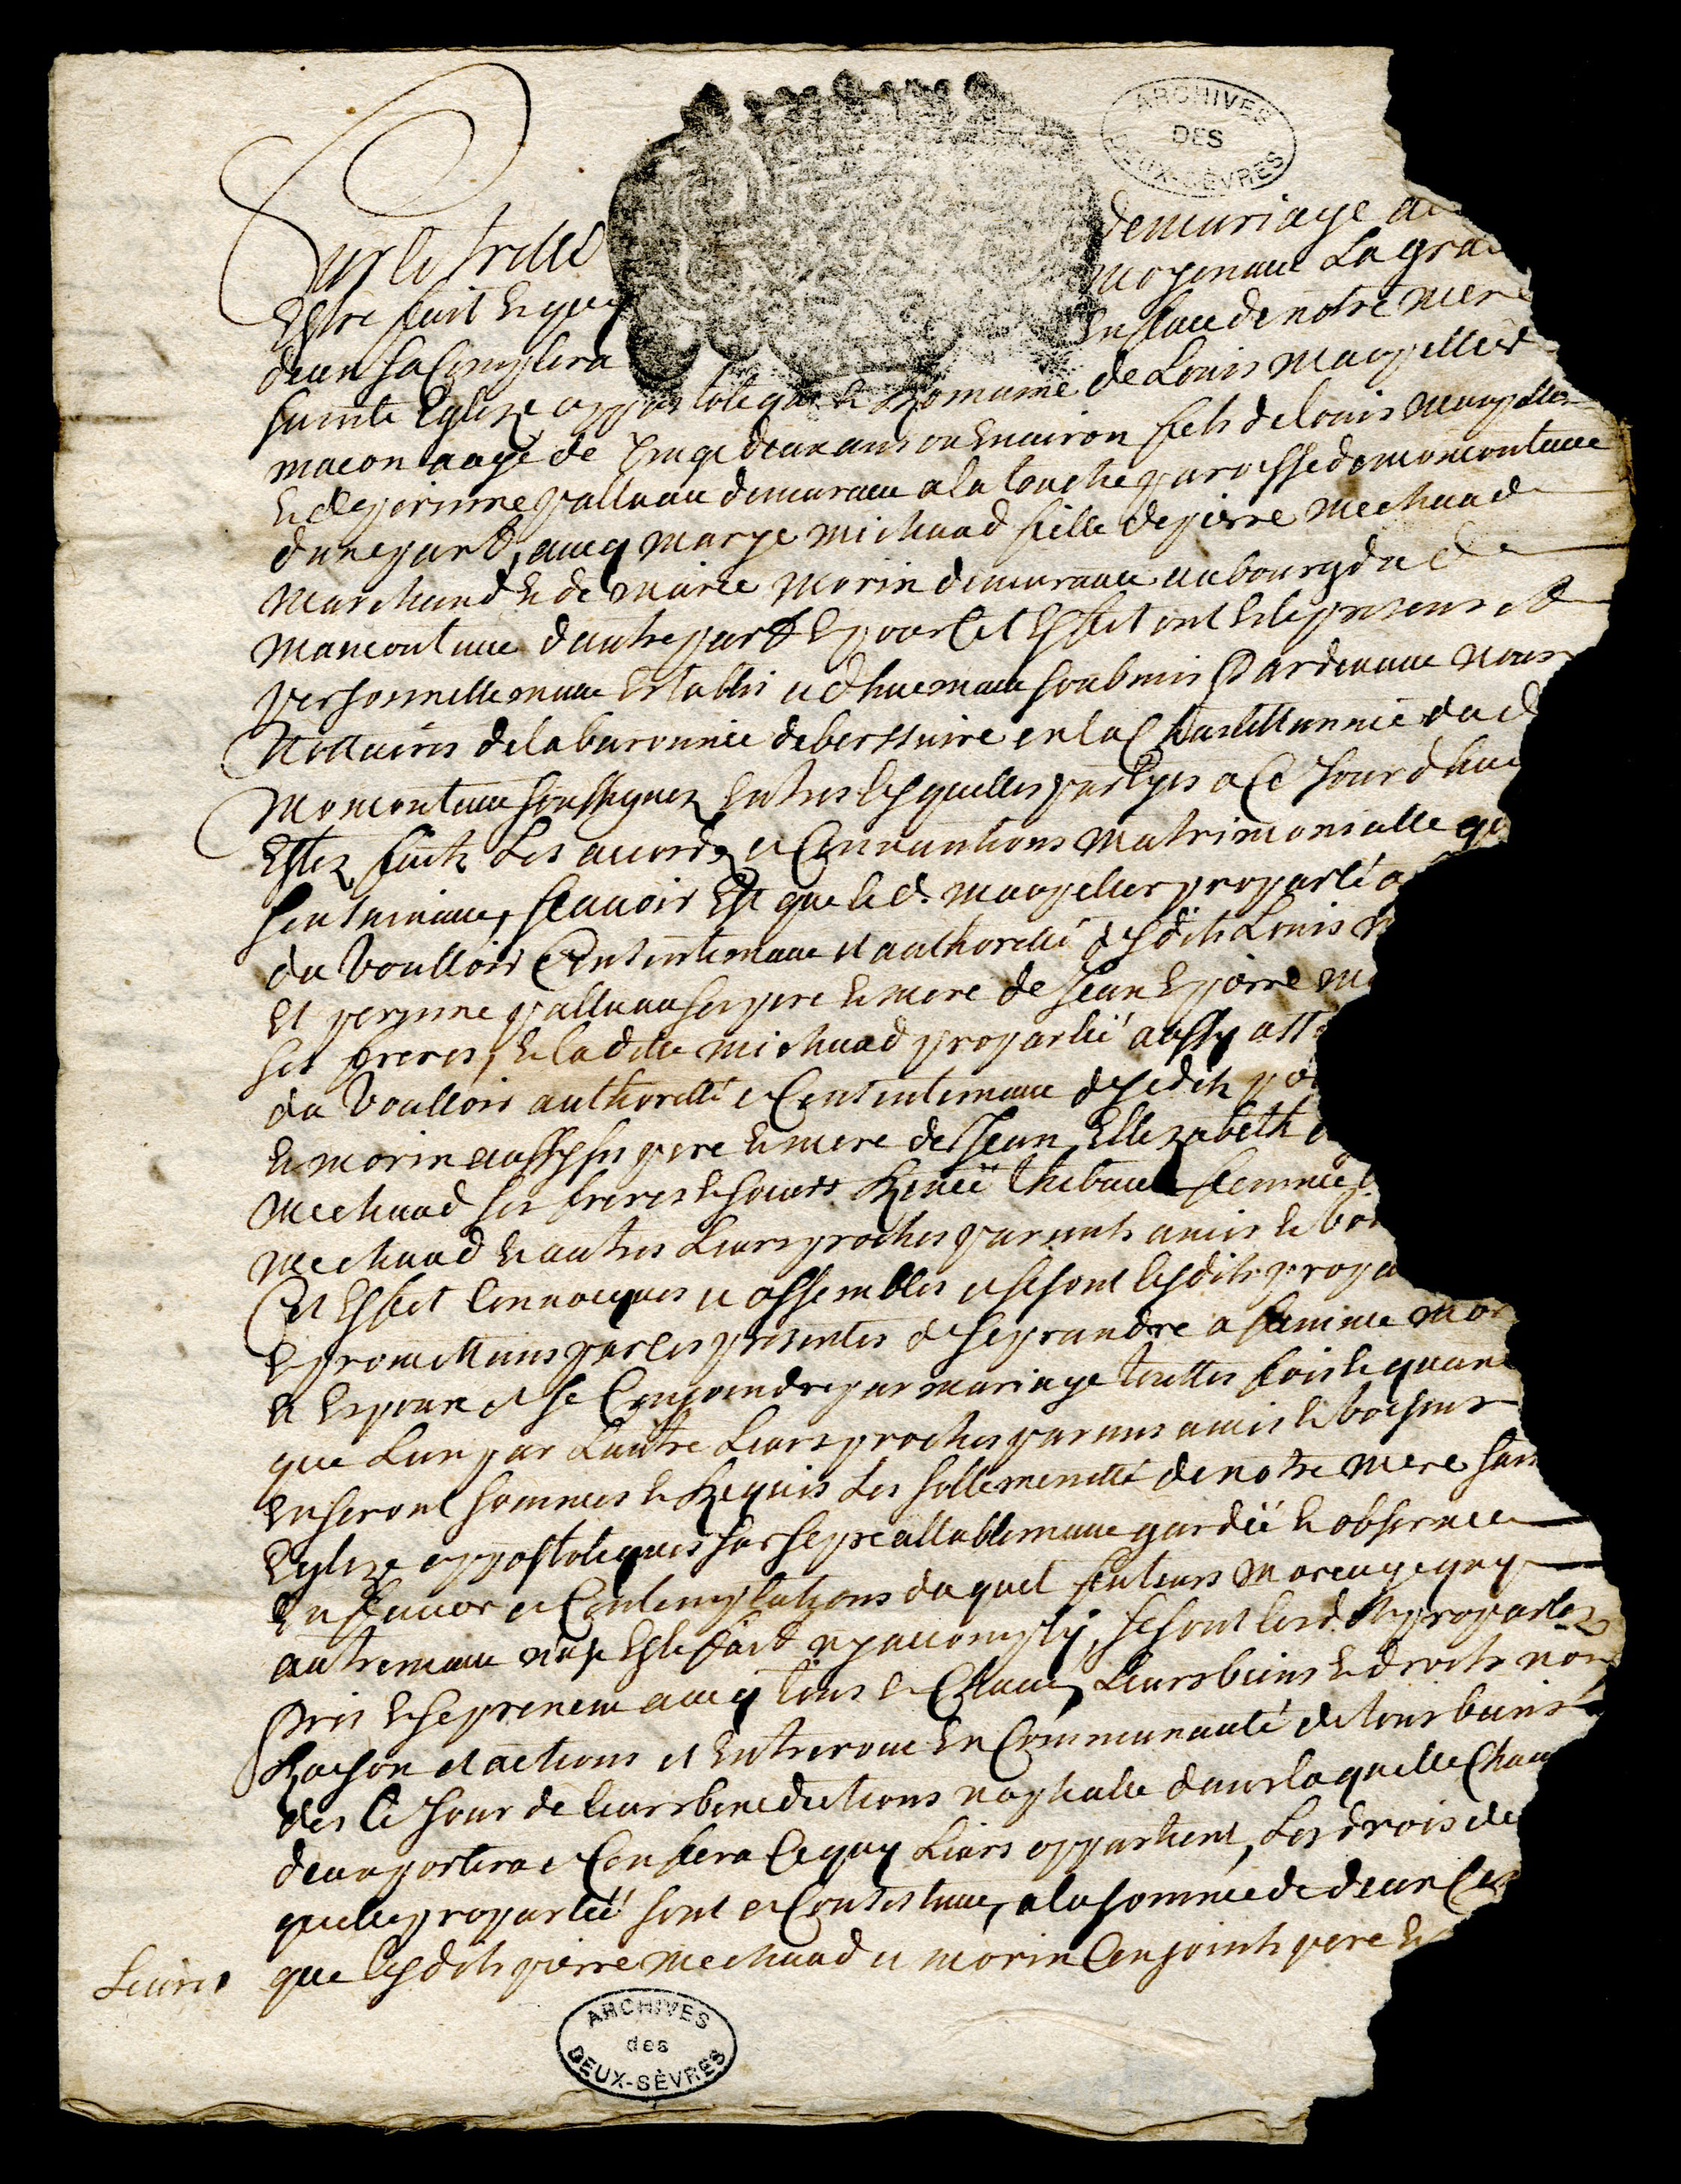 ARCHIVES
DES
DEUX-SÈVRES
Sur le traitté de mariage au
Estre fait et quy moyenant La gra
dieu sacomplira En face de notre mere
sainte Eglize appostolique et Romaine de Louis maupellier
macon aagé de Vingt deux ans ou Environ fils de louis maupellier
Et de perinne palluau demurant a la touche paroisse de moncoutant
dune part, avecq marye michaud fille de pierre mechaud
marchand et de marie morin demurant au bourg dud
moncoutant dautre part Et pour Cet Effet ont Esté presens et
personnellemant Establis et dhuemant soubmis Pardevant nous
Nottaires de la baronnie de berssuire en la Chastellannie dud
Moncoutant soussignez Entres lesquelles partyes a Ce Jour dhuy
Estez faits Les accords et Conventions matrimonialle qu
sensuivent, scavoir Est que le d. maupellier proparlé a
du Voulloir Consentemant et authorité desdits Louis m
Et perinne palluau ses pere et mere de Jean Et pierre ma
ses freres, et ladite michaud proparlée aussy ass
du Voulloir authoritté et Consentemant desdits pie
et morin aussy ses pere et mere de Jean, Ellizabeth
Mechaud ses freres et soeurs Renée thibaud femme
mechaud et autres Leurs proches parents amis et
Cet Effet Convocques et assembles et se sont lesdits propa
et promettans par ces presentes de se prandre a femme
et Espoux et se Conjoindre par mariage touttes fois et quan
que Lun par Lautre Leurs proches parans amis et
En seront sommés et Requis Les sollemnitté de notre mere sain
Eglize appostoliques sur se preallablemant gardée et observée
En faveur et Contemplations duquel futurs mariage quy
autremant neuse Esté fait ny accomply, se sont lesdits proparlez
Pris et se prenent avecq tous et Chacuns Leurs biens et droits nom
Raison et actions et Entreront En Communauté de tous biens
des le Jour de leurs benedictions nuptialle dans laquelle Chac
deux portera et Confera Ce quy Leurs appartient, Les drois de
quelle proparlée sont et Consistant, a la somme de deux Cen
Livres que lesdits pierre mechaud et morin Conjoints pere et
ARCHIVES
des
DEUX-SÈVRES